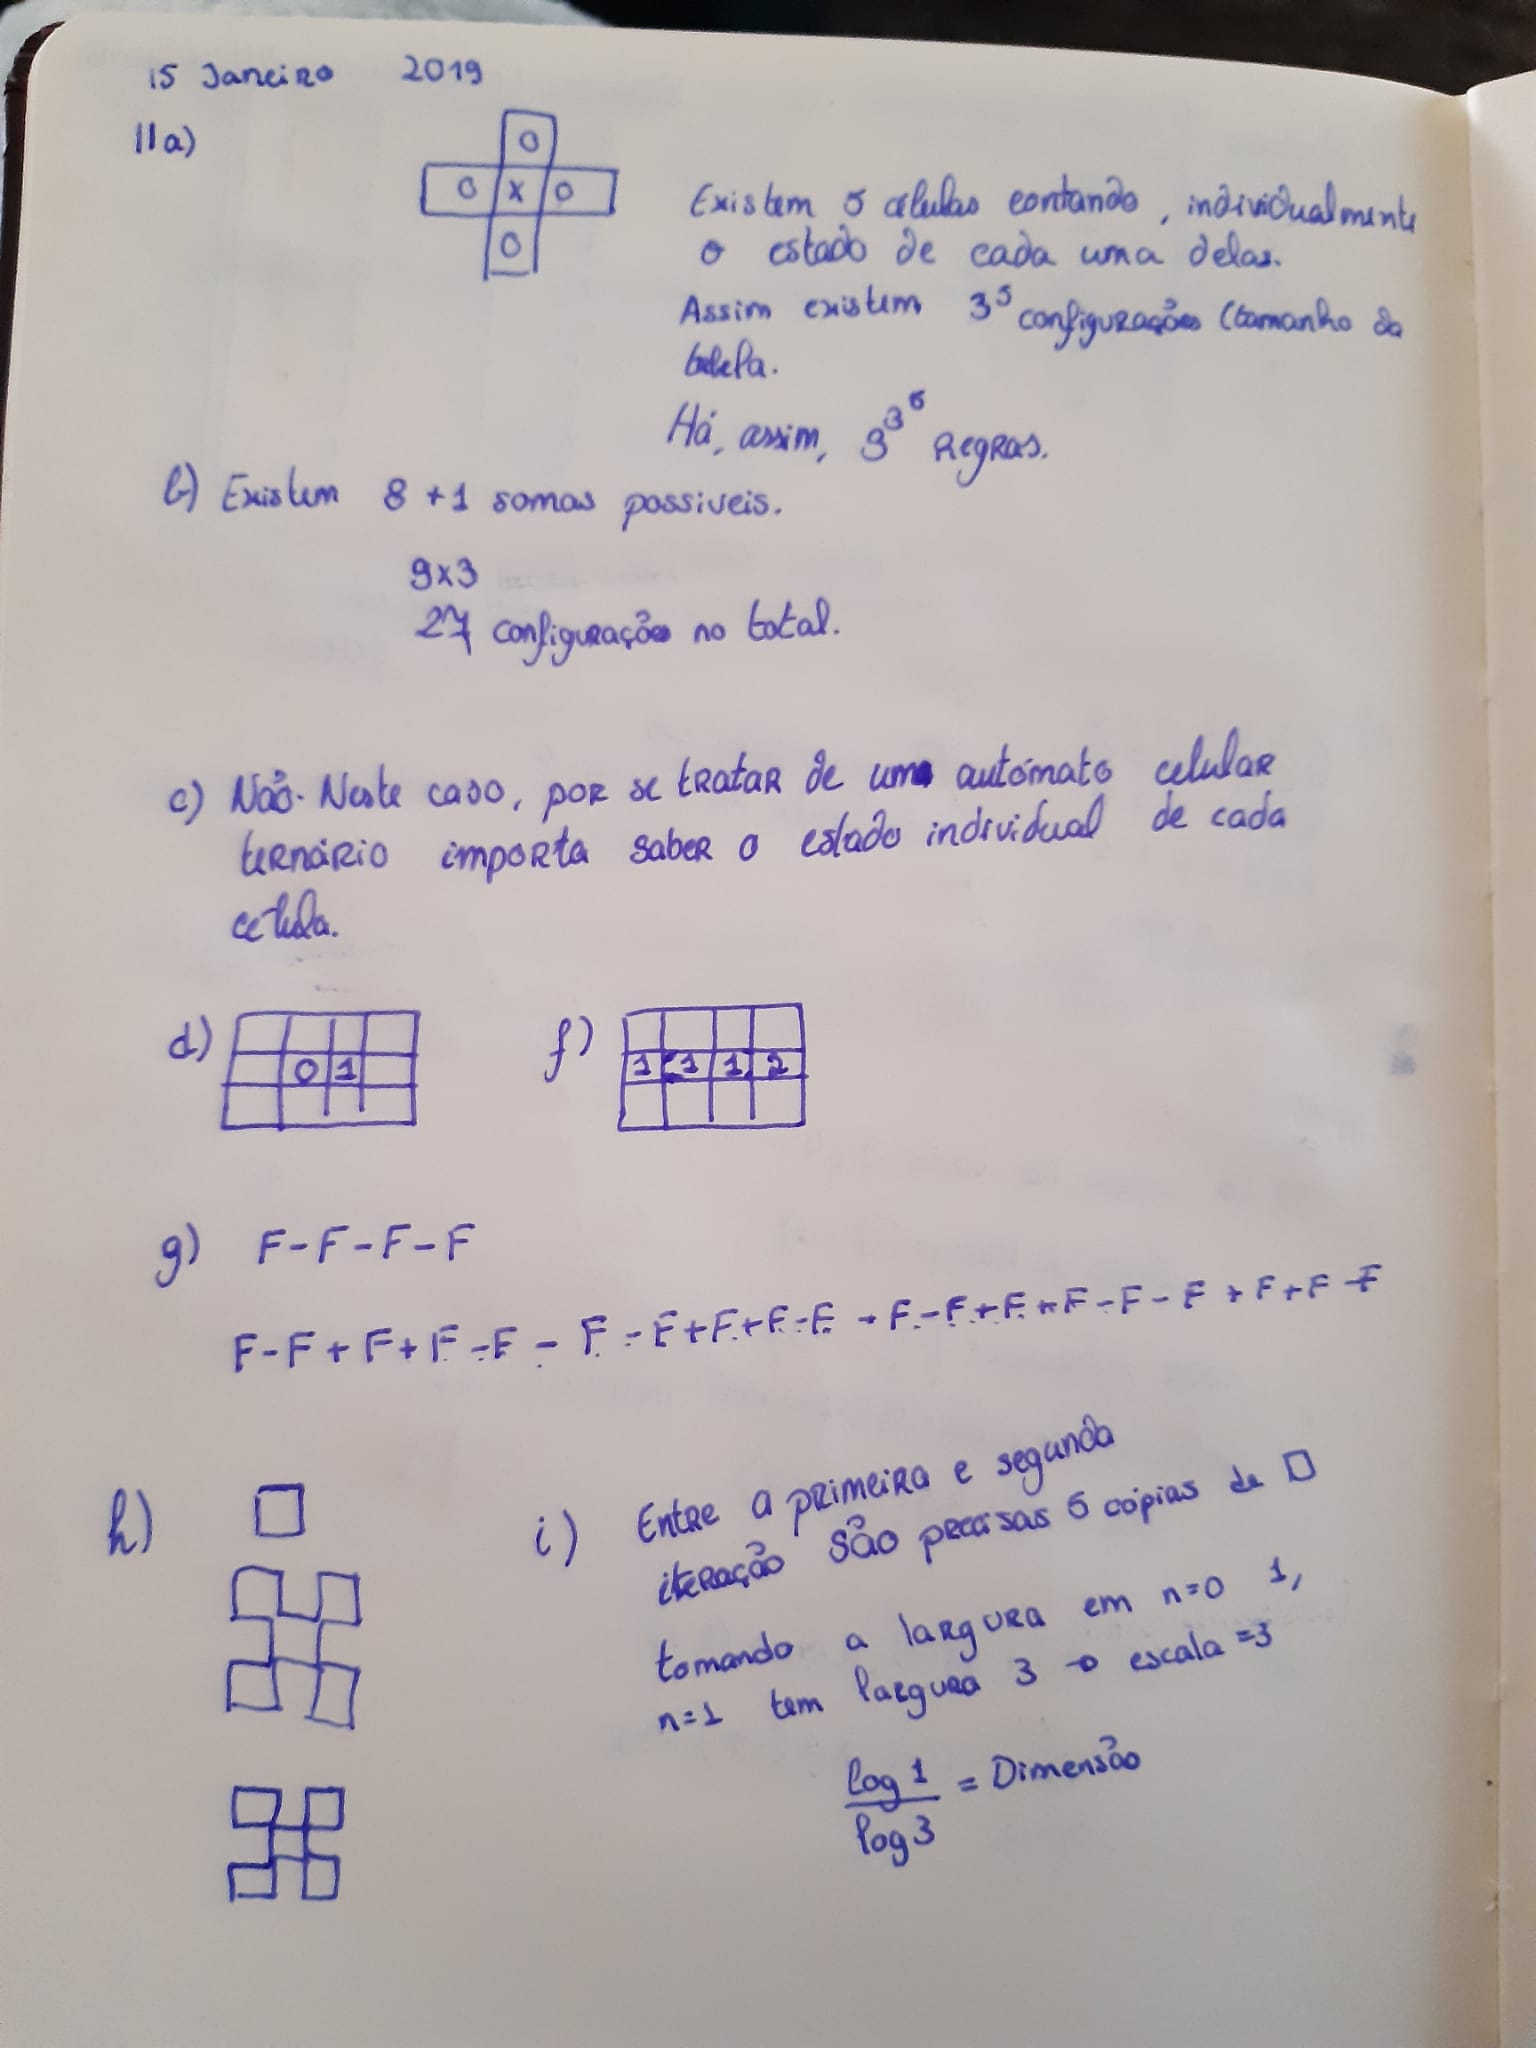 15 Janeiro 2019
11a)
O
O X O
O
Existem 5 células contando, individualmente
o estado de cada uma delas.
Assim existem 3⁵ configurações (tamanho da
tabela.
Há, assim, 3^3^5 regras.
b) Existem 8+1 somas possiveis.
9x3
27 configurações no total.
c) Não. Neste caso, por se tratar de um autómato celular
ternário importa saber o estado individual de cada
célula.
d) 0 1
f) 1 1 1 2
g) F-F-F-F
F-F+F+F-F-F-F+F+F-F-F-F+F+F-F-F+F+F-F
h)
i) Entre a primeira e segunda
iteração são precisas 5 cópias de □
tomando a largura em n=0 1,
n=1 tem largura 3 → escala=3
log 1
log 3
= Dimensão